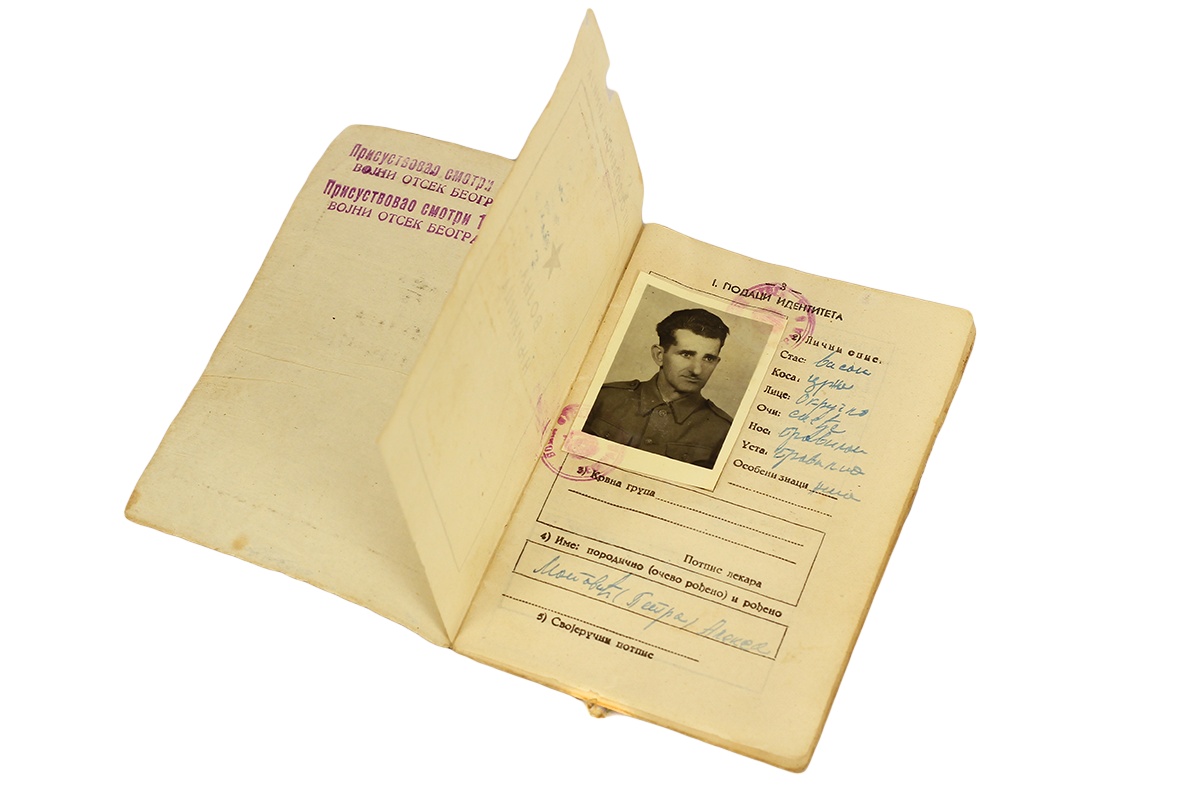 Присуствовао смотри
ВОЈНИ ОТСЕК БЕОГРА
Присуствовао смотри 1
ВОЈНИ ОТСЕК БЕОГРА
— 3 —
I. ПОДАЦИ ИДЕНТИТЕТА
2) Лични опис.
Стас: висок
Коса: црна
Лице:
Очи:
Нос: правилан
Уста: правилна
Особени знаци нема
3) Крвна група
Потпис лекара
4) Име: породично (очево рођено) и рођено
(Петра)
5) Својеручни потпис